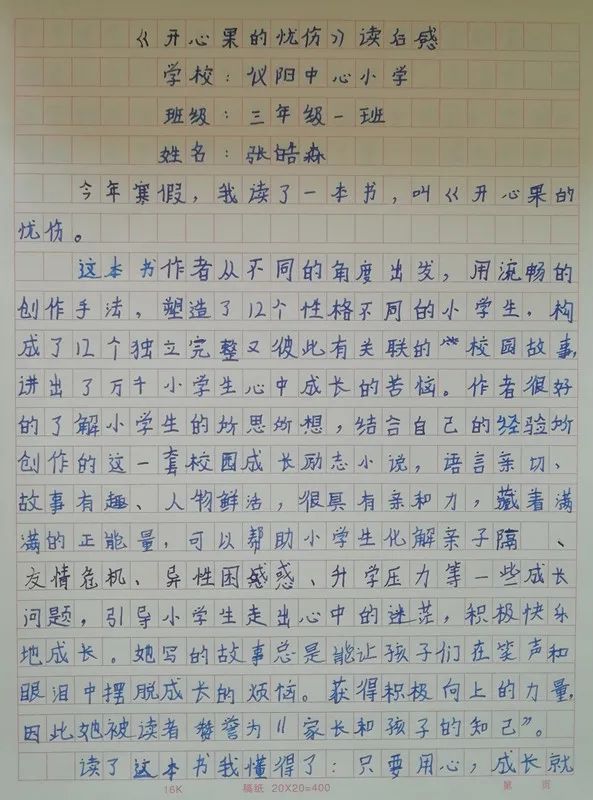 《开心果的忧伤》读后感
学校：仪阳中心小学
班级：三年级一班
姓名：张皓森
今年寒假，我读了一本书，叫《开心果的
忧伤。
这本书作者从不同的角度出发，用流畅的
创作手法，塑造了12个性格不同的小学生，构
成了12个独立完整又彼此有关联的校园故事，
讲出了万千小学生心中成长的苦恼。作者很好
的了解小学生的所思所想，结合自己的经验所
创作的这一套校园成长励志小说，语言亲切、
故事有趣、人物鲜活，很具有亲和力，藏着满
满的正能量，可以帮助小学生化解亲子隔、
友情危机、异性困惑惑、升学压力等一些成长
问题，引导小学生走出心中的迷茫，积极快乐
地成长。她写的故事总是能让孩子们在笑声和
眼泪中摆脱成长的烦恼。获得积极向上的力量，
因此她被读者赞誉为“家长和孩子的知己”。
读了这本书我懂得了：只要用心，成长就
16K 稿纸 20X20=400 第 页